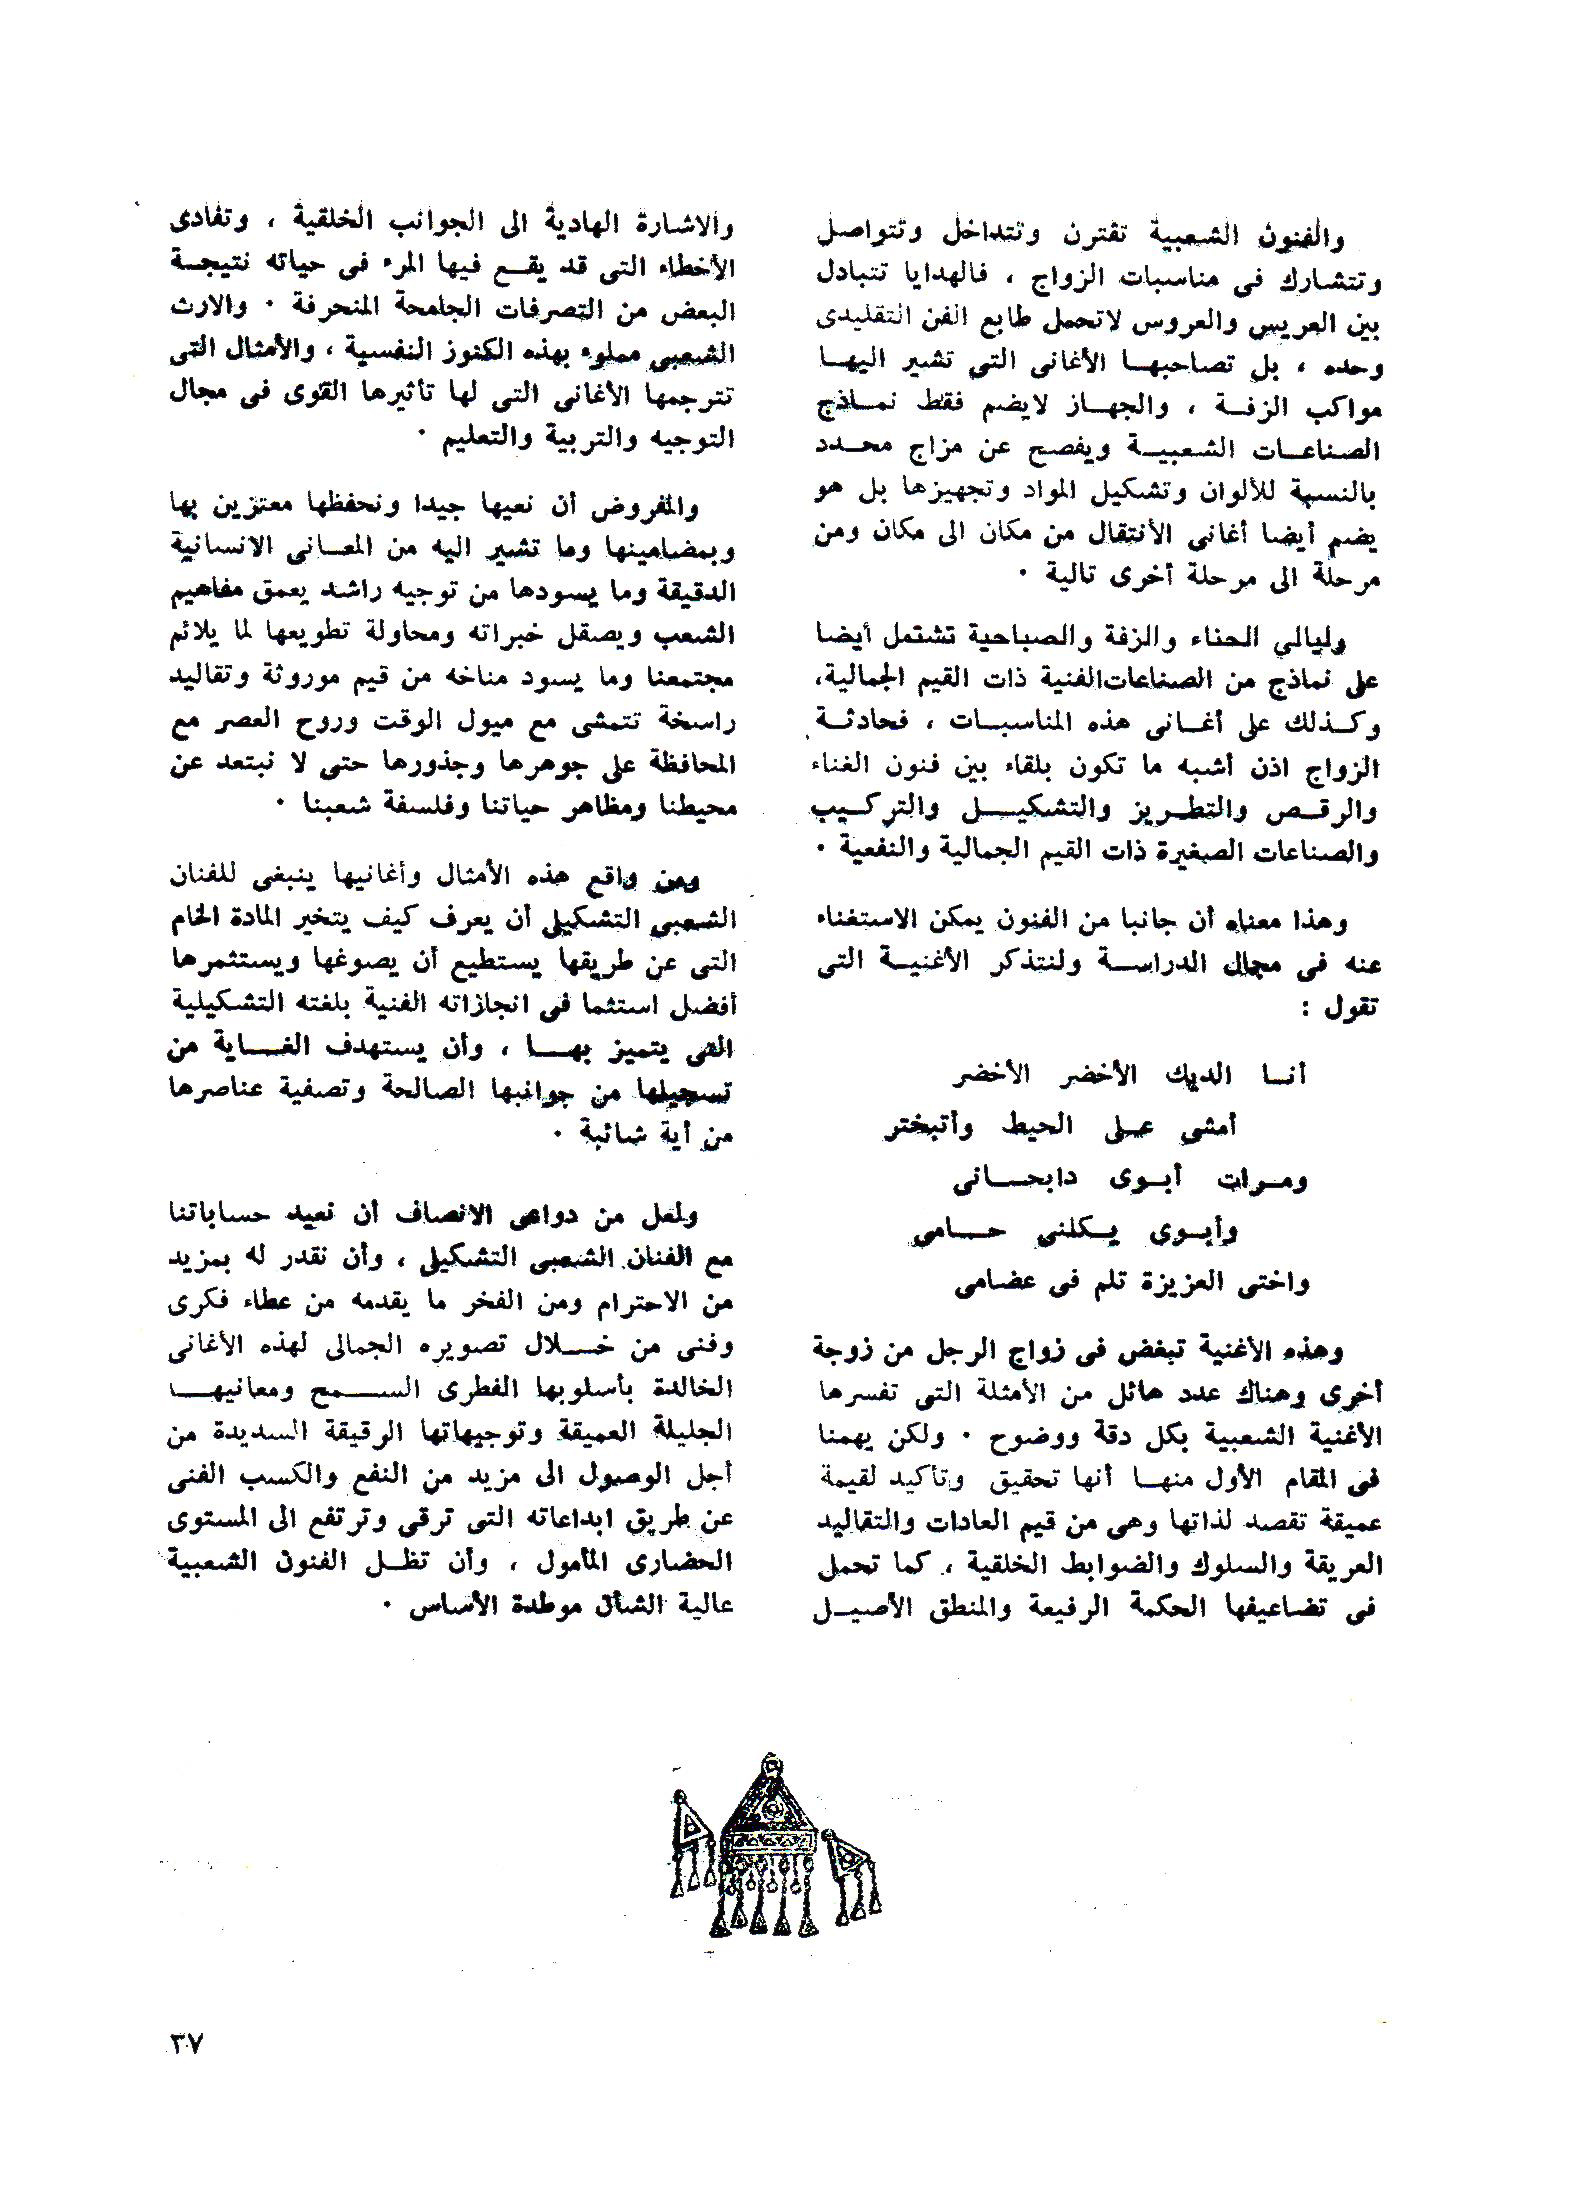 والفنون الشعبية تقترن وتتداخل وتتواصل
وتتشارك فى مناسبات الزواج ، فالهدايا تتبادل
بين العريس والعروس لاتحمل طابع الفن التقليدى
وحده ، بل تصاحبهـا الأغانى التى تشير اليهـا
مواكب الزفـة ، والجهـاز لايضم فقط نمـاذج
الصناعـات الشعبيـة ويفصح عن مزاج محـدد
بالنسبة للألوان وتشكيل المواد وتجهيزها بل هو
يضم أيضا أغانى الأنتقال من مكان الى مكان ومن
مرحلة الى مرحلة أخرى تالية .
وليالي الحناء والزفة والصباحية تشتمل أيضا
على نماذج من الصناعات الفنية ذات القيم الجمالية،
وكـذلك على أغـانى هذه المناسبـات ، فحادثـة
الزواج اذن أشبه ما تكون بلقاء بين فنون الغناء
والرقـص والتطـريز والتشكيـل والتركـيب
والصناعات الصغيرة ذات القيم الجمالية والنفعية .
وهذا معناه أن جانبا من الفنون يمكن الاستغناء
عنه فى مجال الدراسـة ولنتذكر الأغنيـة التى
تقول :
أنـا الديك الأخضر الأخضر
أمشى عـلى الحيط وأتبختر
ومـرات أبـوى دابحـانى
وأبـوى يـكلنى حـامى
واختى العزيزة تلم فى عضامى
وهذه الأغنية تبغض فى زواج الرجل من زوجة
أخرى وهناك عدد هائل من الأمثلة التى تفسرها
الأغنية الشعبية بكل دقة ووضوح . ولكن يهمنا
فى المقام الأول منهـا أنها تحقيق وتأكيد لقيمة
عميقة تقصد لذاتها وهى من قيم العادات والتقاليد
العريقة والسلوك والضوابط الخلقية ، كما تحمل
فى تضاعيفها الحكمة الرفيعة والمنطق الأصيـل
والاشارة الهادية الى الجوانب الخلقية ، وتفادى
الأخطاء التى قد يقـع فيها المرء فى حياته نتيجـة
البعض من التصرفات الجامحة المنحرفة . والارث
الشعبى مملوء بهذه الكنوز النفسية ، والأمثال التى
تترجمها الأغانى التى لها تأثيرها القوى فى مجال
التوجيه والتربية والتعليم .
والمفروض أن نعيها جيدا ونحفظها معتزين بها
وبمضامينها وما تشير اليه من المعـانى الانسانية
الدقيقة وما يسودها من توجيه راشد يعمق مفاهيم
الشعب ويصقل خبراته ومحاولة تطويعها لما يلائم
مجتمعنا وما يسود مناخه من قيم موروثة وتقاليد
راسخة تتمشى مع ميول الوقت وروح العصر مع
المحافظة على جوهرها وجذورها حتى لا نبتعد عن
محيطنا ومظاهر حياتنا وفلسفة شعبنا .
ومن واقع هذه الأمثال وأغانيها ينبغى للفنان
الشعبى التشكيلى أن يعرف كيف يتخير المادة الخام
التى عن طريقها يستطيع أن يصوغها ويستثمرها
أفضل استثما فى انجازاته الفنية بلغته التشكيلية
التى يتميز بهـا ، وأن يستهدف الغـاية من
تسجيلها من جوانبها الصالحة وتصفية عناصرها
من أية شائبة .
ولعل من دواعى الانصاف أن نعيد حساباتنا
مع الفنان الشعبى التشكيلى ، وأن نقدر له بمزيد
من الاحترام ومن الفخر ما يقدمه من عطاء فكرى
وفنى من خـلال تصويره الجمالى لهذه الأغانى
الخالدة بأسلوبها الفطرى السـمح ومعانيهـا
الجليلة العميقة وتوجيهاتها الرقيقة السديدة من
أجل الوصول الى مزيد من النفع والكسب الفنى
عن طريق ابداعاته التى ترقى وترتفع الى المستوى
الحضارى المأمول ، وأن تظـل الفنون الشعبية
عالية الشأن موطدة الأساس .
٣٧